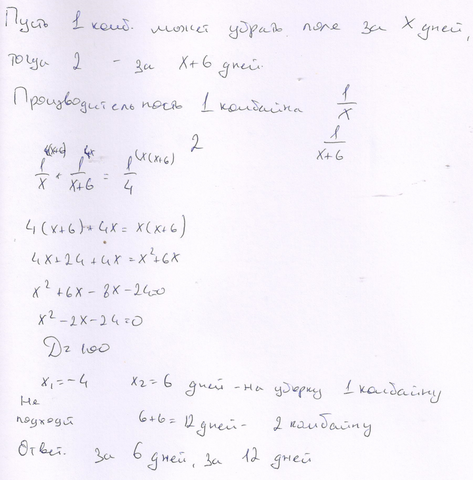 Пусть 1 комб. может убрать поле за X дней,
тогда 2 - за x+6 дней.
Производительность 1 комбайна 1/x
2 1/(x+6)
1/x + 1/(x+6) = 1/4
4(x+6)+4x = x(x+6)
4x+24+4x = x²+6x
x²+6x-8x-24=0
x²-2x-24=0
D=100
x₁=-4 x₂=6 дней - на уборку 1 комбайну
Не
подходит 6+6=12 дней - 2 комбайну
Ответ. за 6 дней, за 12 дней